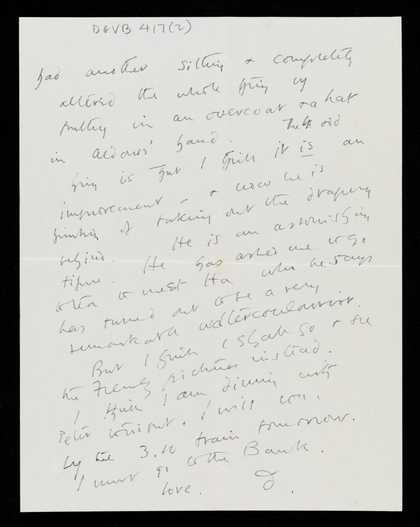 DGVB 417(2)
had another sitting & completely
altered the whole thing by
putting in an overcoat & a hat
in Aldous' hand. The odd
thing is that I think it is an
improvement – & now he is
thinking of taking out the drapery
behind. He is an astonishing
figure. He has asked me to go
to tea to meet Ha who he says
has turned out to be a very
remarkable watercolourist.
But I think I shall go & see
the French pictures instead.
I think I am dining with
Peter tonight. I will
by the 3.10 train tomorrow.
I must go to the Bank.
love. J.